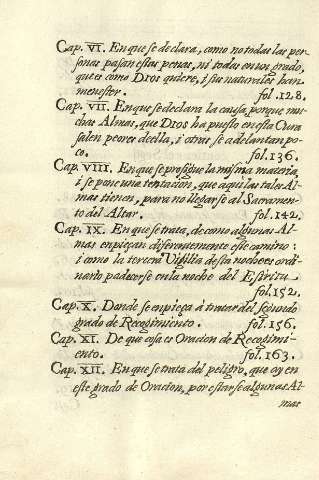 Cap. VI. En que se declara, como no todas las per-
sonas pasan estas penas, ni todas en un grado,
que es como DIOS quiere, i sus naturales han
menester. fol. 128.
Cap. VII. En que se declara la causa, porque mu-
chas Almas, que DIOS ha puesto en esta Cura
salen peores de ella, i otras se adelantan po-
co. fol. 136.
Cap. VIII. En que se prosigue la misma materia,
i se pone una tentacion, que aqui las tales Al-
mas tienen, para no llegarse al Sacramen-
to del Altar. fol. 142.
Cap. IX. En que se trata, de como algunas Al-
mas enpiezan diferentemente este camino:
i como la tercera Vigilia desta noche es ordi-
nario padecerse en la noche del Espiritu
fol. 152.
Cap. X. Donde se enpieça à tratar del segundo
grado de Recogimiento. fol. 156.
Cap. XI. De que cosa es Oracion de Recogimi-
ento. fol. 163.
Cap. XII. En que se trata del peligro, que ay en
este grado de Oracion, por estarse algunas Al-
mas